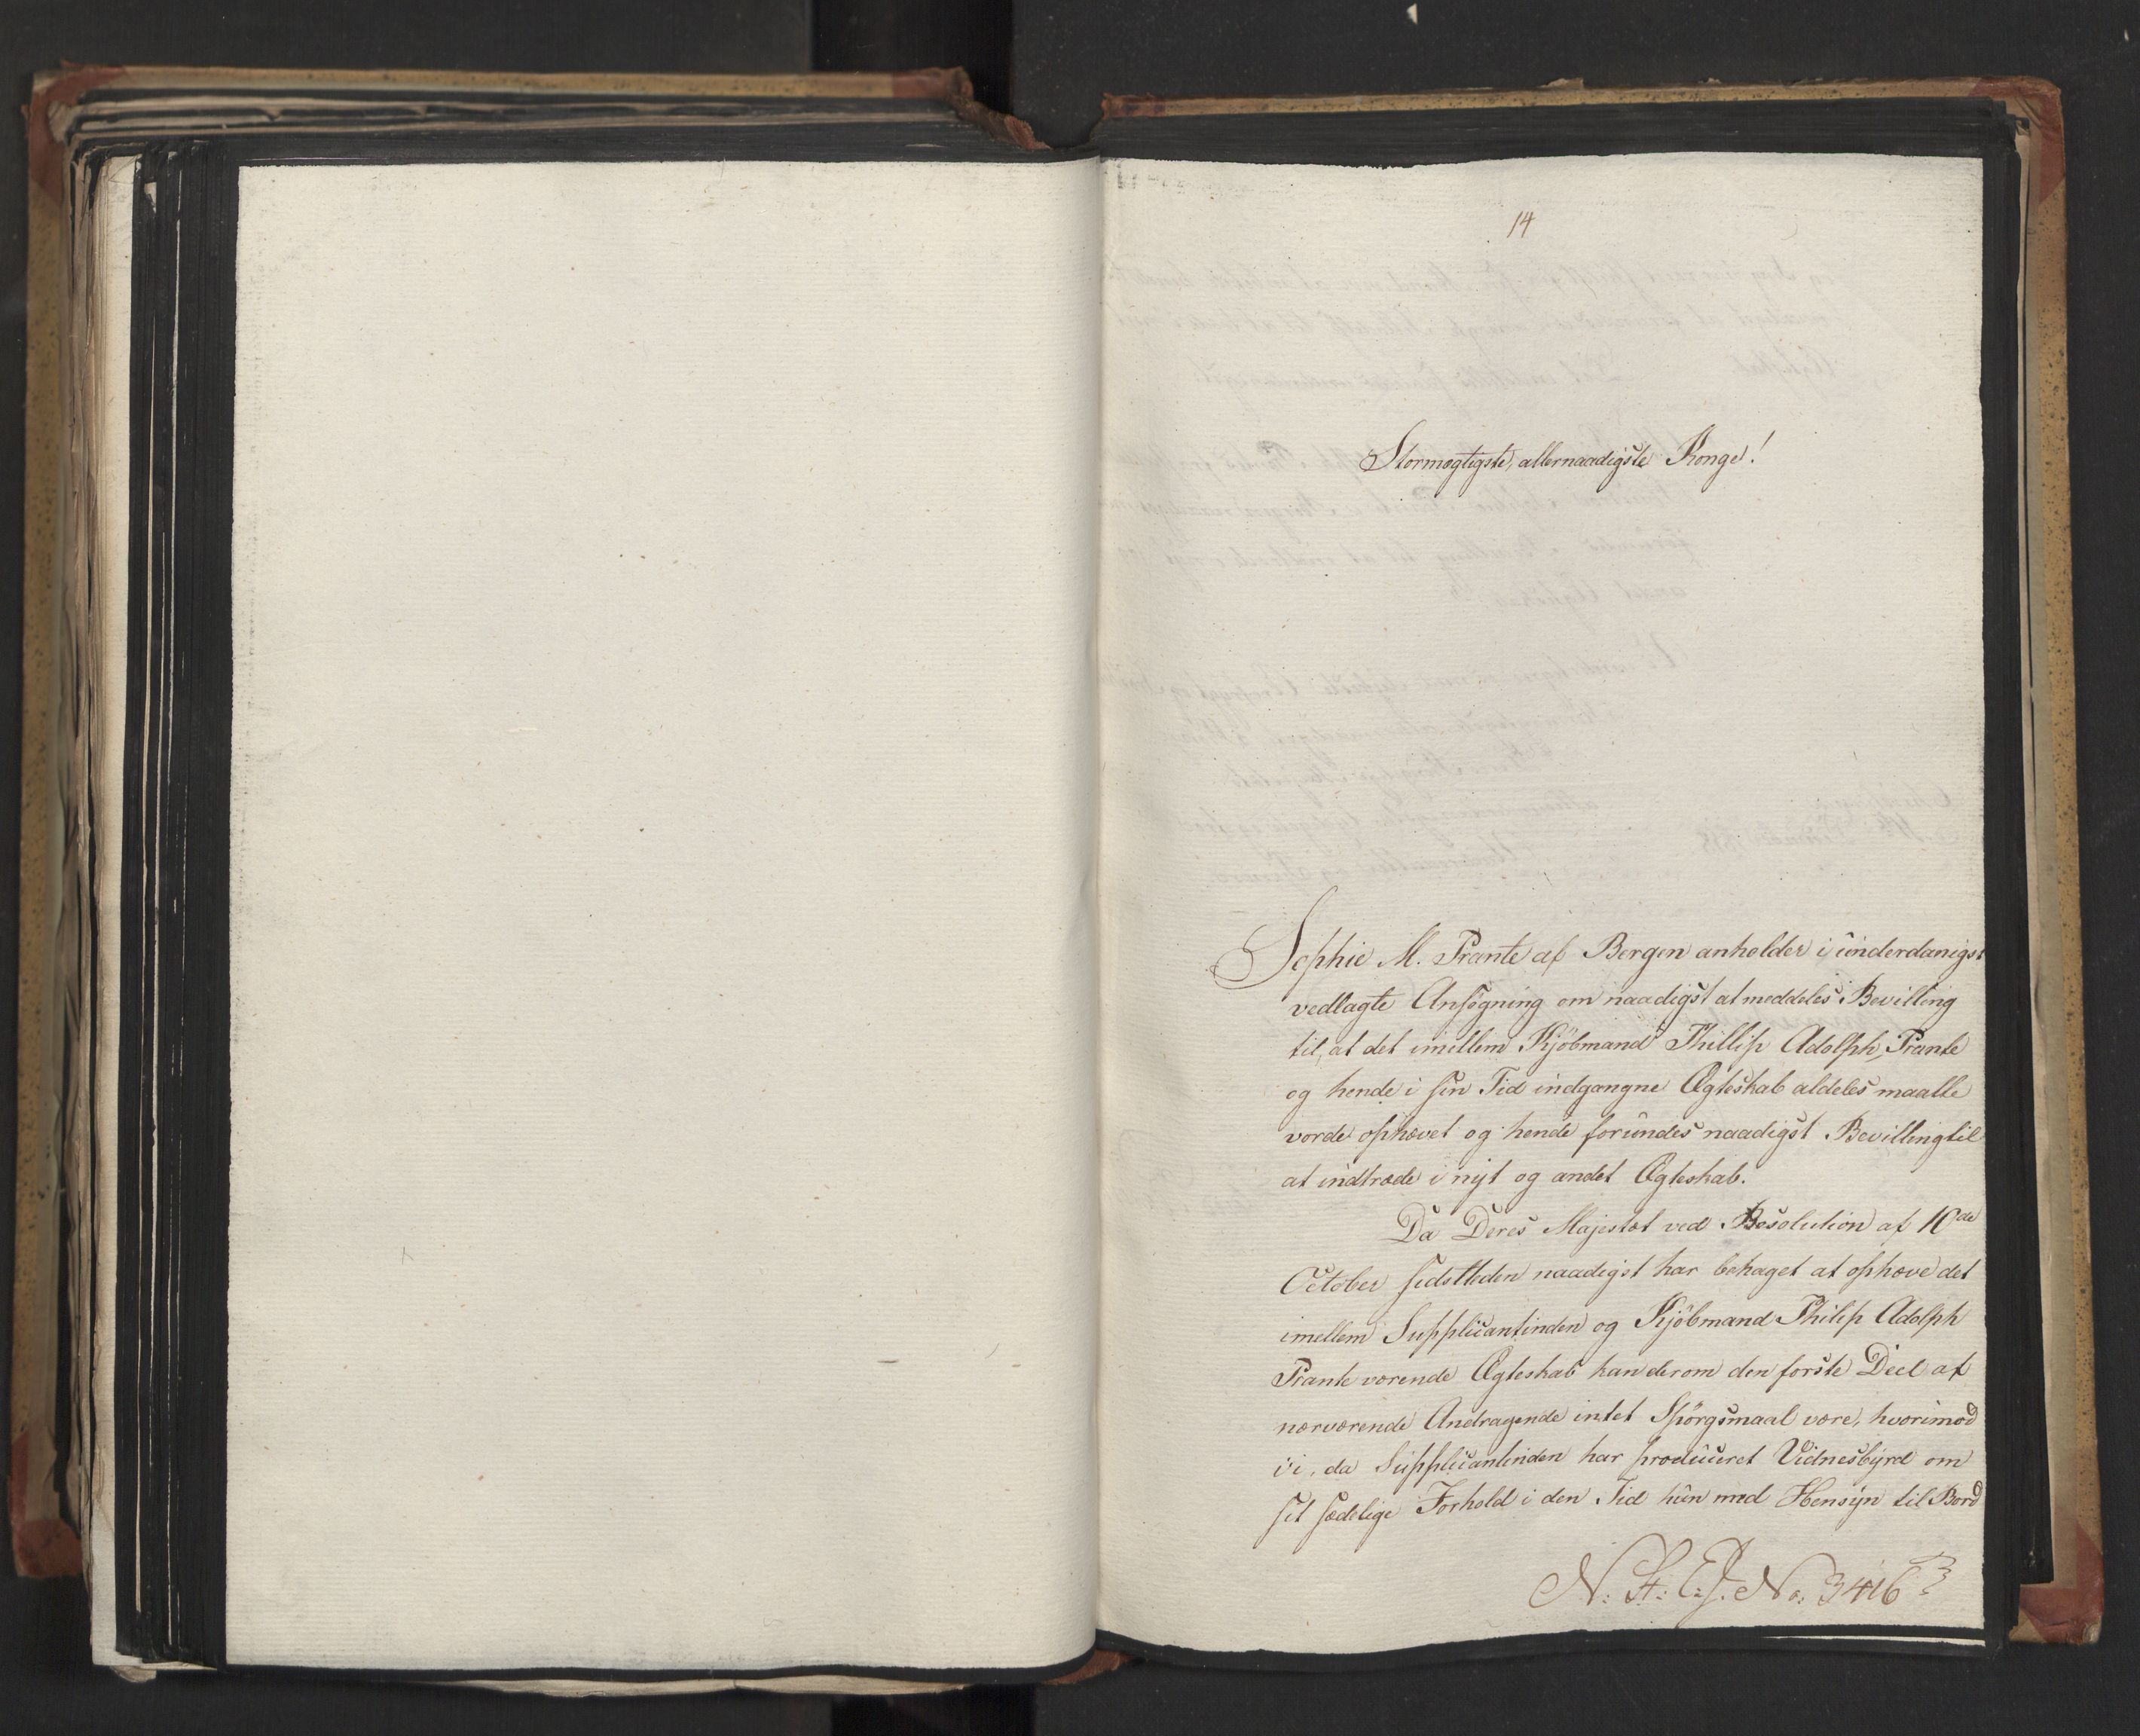 14
Stormægtigste, allernaadigste Konge!
Sophie M. Prante af Bergen anholder i underdanigst
vedlagte Ansøgning om naadigst at meddeles Bevilling
til, at det imellem Kjöbmand Phillip Adolph Prante
og hende i sin Tid indgangne Ægteskab aldeles maatte
vorde ophævet og hende forundes naadigst Bevilling til
at indtræde i nyt og andet Ægteskab.
Da Deres Majestæt ved Resolution af 10de
October sidstleden naadigst har behaget at ophæve det
imellem Supplicantinden og Kjöbmand Philip Adolph
Prante værende Ægteskab kan derom den første Deel af
nærværende Andragende intet Spörgsmaal være, hvorimod
vi, da Supplicantinden har produceret Vidnesbyrd om
sit sædelige Forhold i den Tid hun med Hensyn til Bord